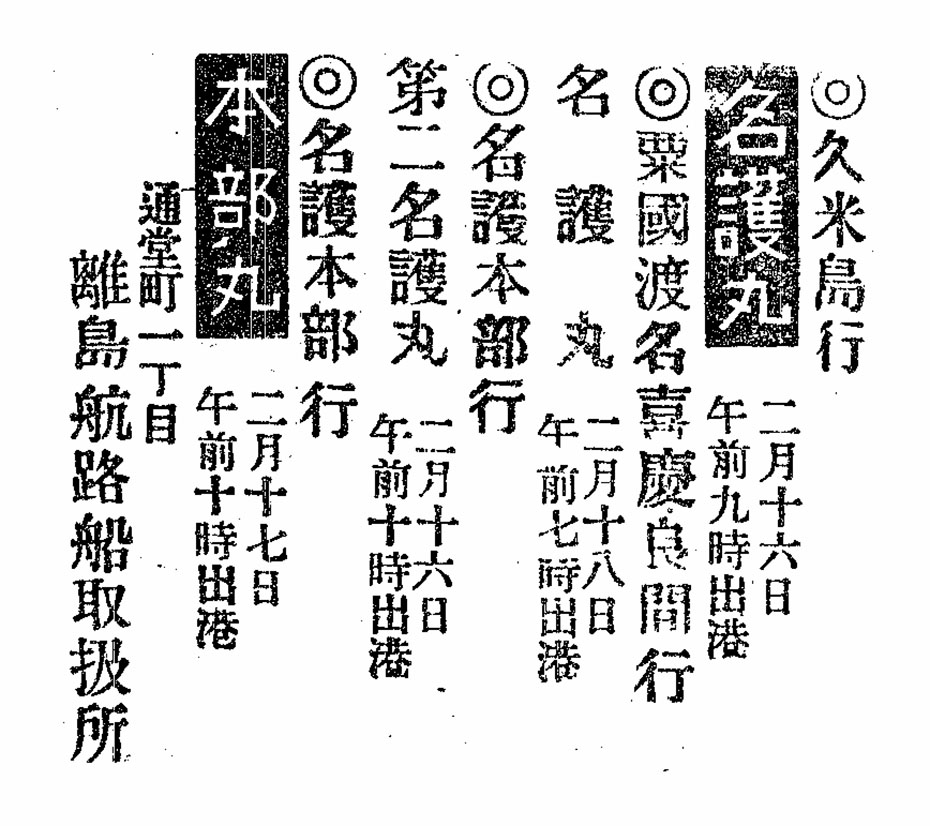 ◎久米島行
名護丸
二月十六日
午前九時出港
◎粟國渡名喜慶良間行
名護丸
二月十八日
午前七時出港
◎名護本部行
第二名護丸
二月十六日
午前十時出港
◎名護本部行
本部丸
二月十七日
午前十時出港
通堂町一丁目
離島航路船取扱所